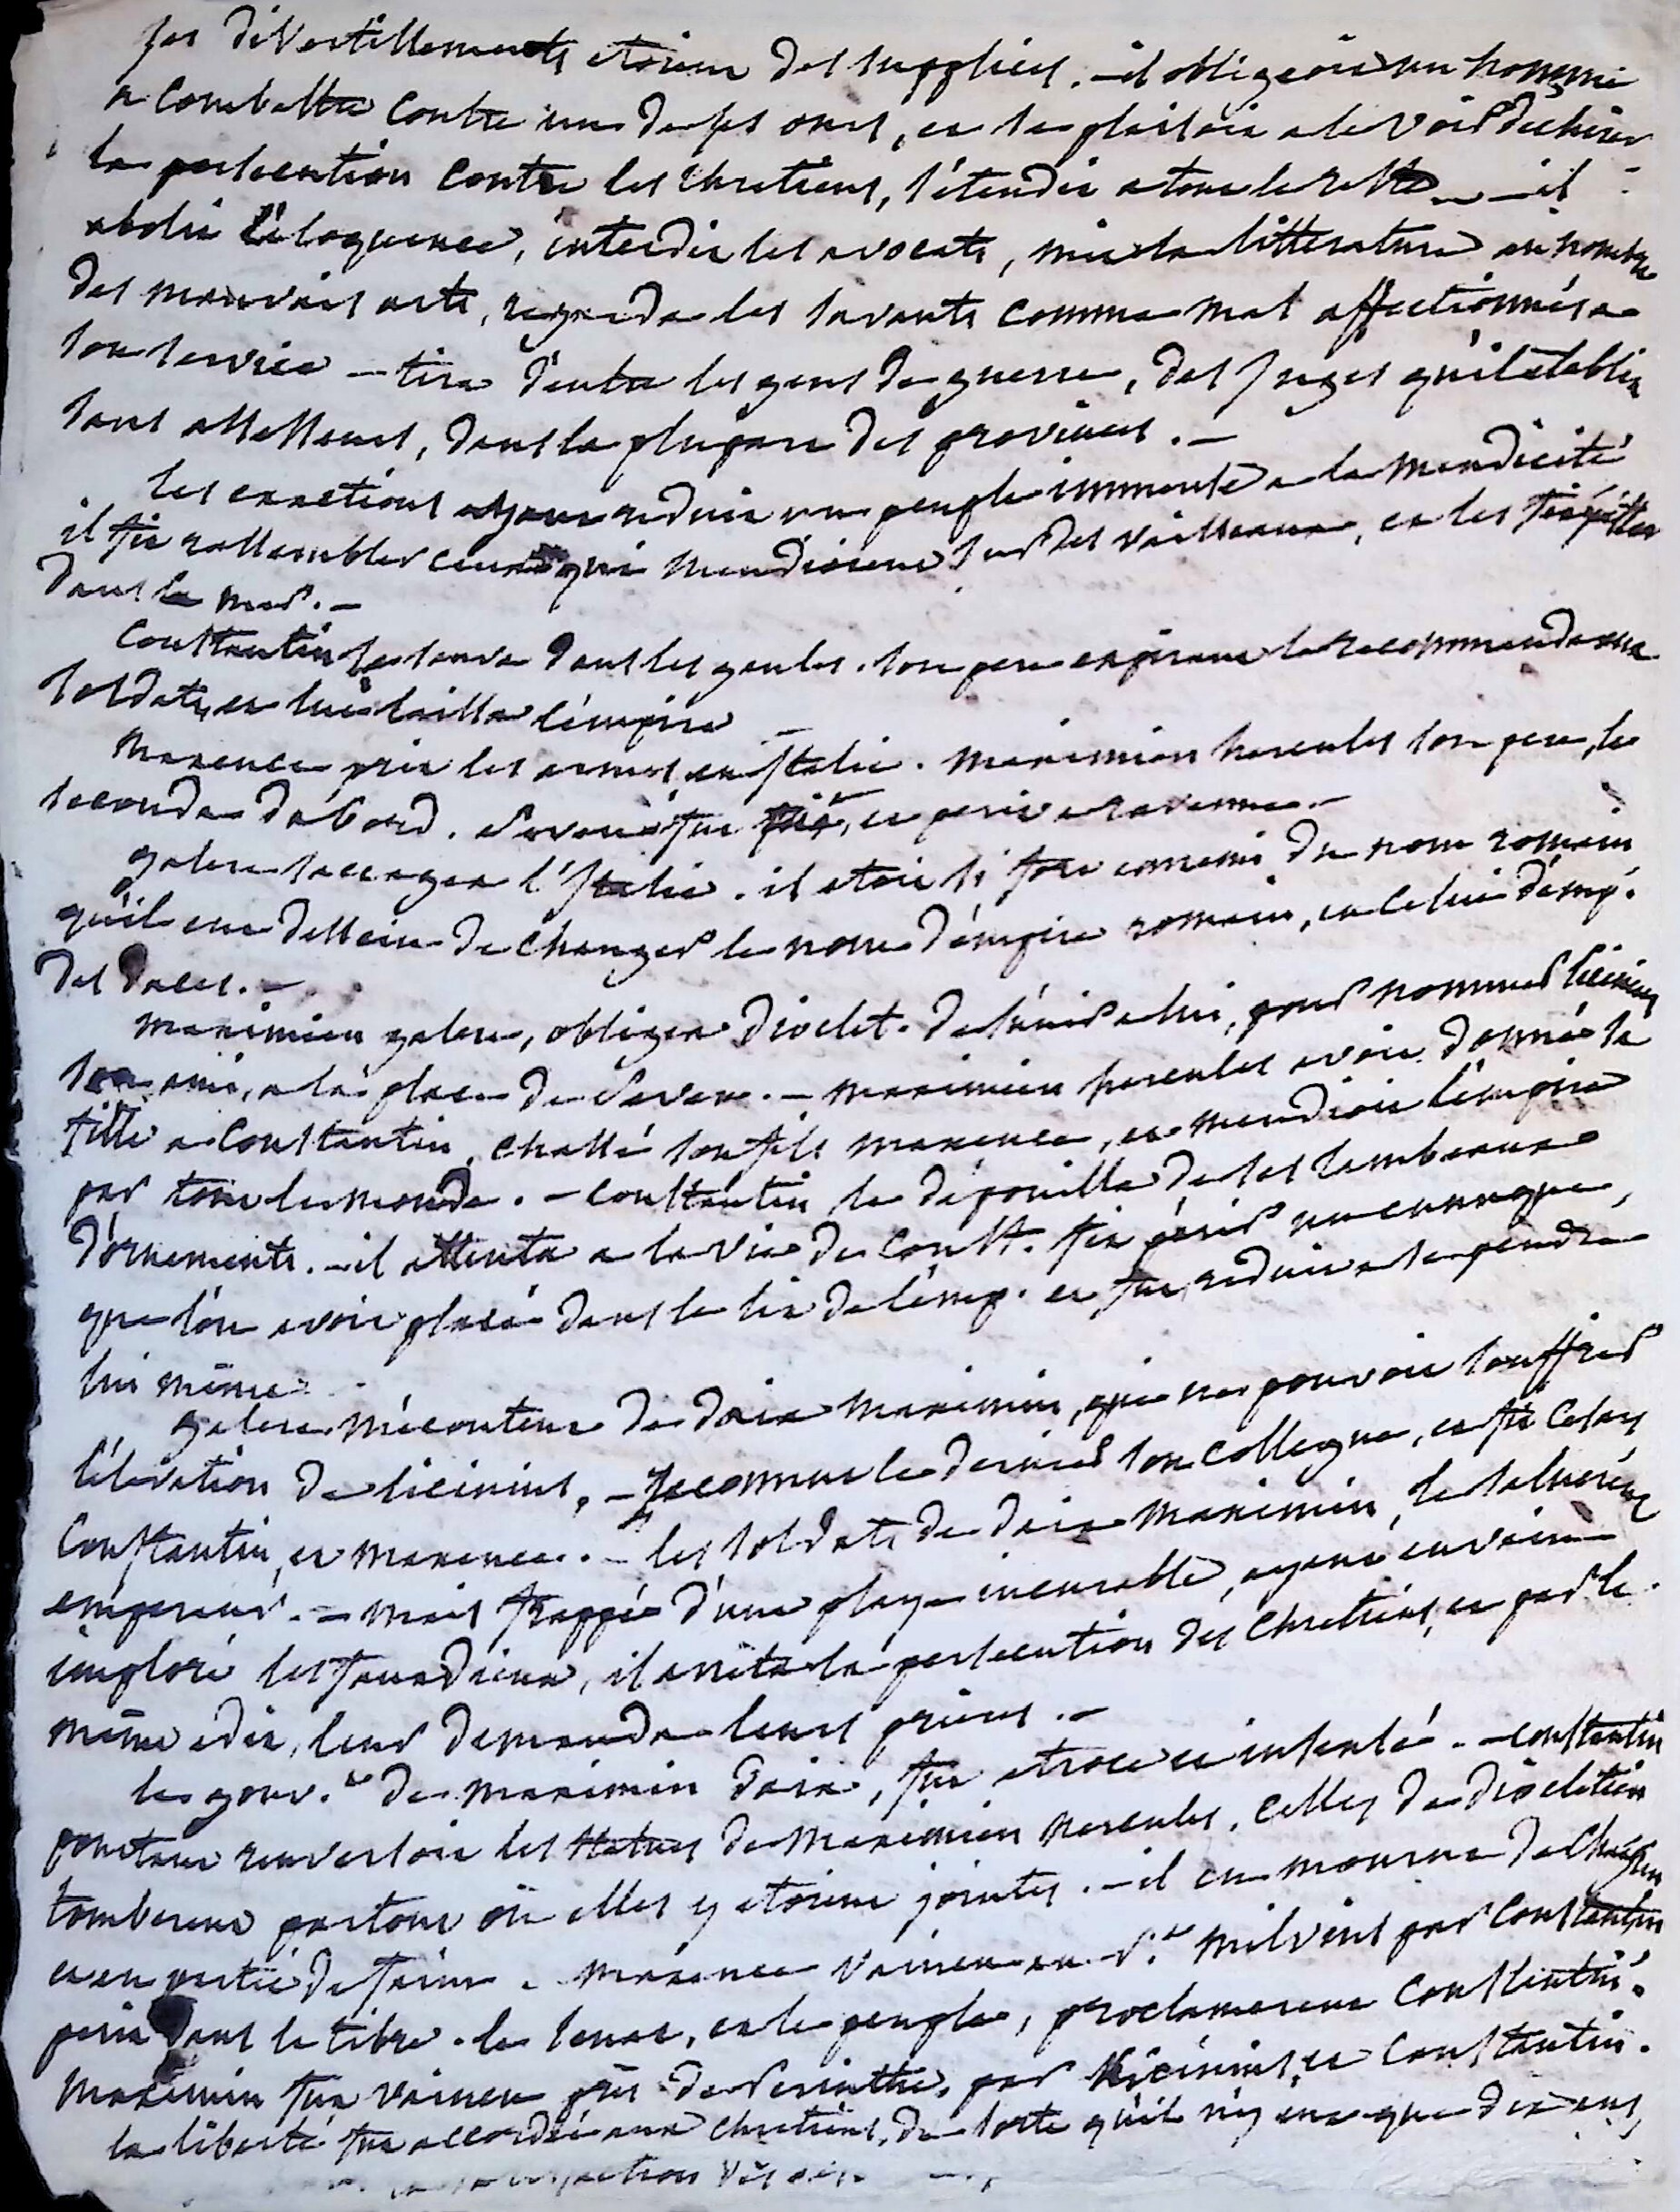 ses divertissements etoient des supplices. – il obligeoit un homme
a combattre contre un de ses ours, et se plaisoit a le voir déchirer
la persecution contre les chretiens, s'étendit a tout le reste – il
abolit l'éloquence, interdit les avocats, mit la litterature au nombre
des mauvais arts, regarda les savants comme mal affectionnés a
son service – tira d'entre les gens de guerre, des Juges qu'il établit
sans assesseurs, dans la plupart des provinces. –
les exactions ayant reduit un peuple immense a la mendicité
il fit rassembler ceux qui mendioient sur des vaisseaux, et les fit jetter
dans la mer. –
Constantin se sauva dans les gaules. son pere expirant le recommanda aux
soldats, et lui laissa l'empire –
Maxence prit les armes en Italie. Maximien hercules son pere, le
seconda d'abord. Severe fut pris, et perit a ravenne. –
galere saccagea l'Italie. il etoit si fort ennemi du nom romain
qu'il eut dessein de changer le nom d'empire romain, en celui d'emp.
des daces. –
maximien galere, obligea dioclet. de s'unir a lui, pour nommer licinius
son ami, a la place de Severe. – maximien hercules avoit donné sa
fille a Constantin, chassé son fils maxence, et mendioit l'empire
par tout le monde. – Constantin le dépouilla de ses lambeaux
d'ornements. – il attenta a la vie de Const. fit périr un eunuque,
que l'on avoit placé dans le lit de l'emp. et fut reduit a se pendre
lui même
galere mécontent de daia maximin, qui ne pouvoit souffrir
l'élévation de licinius, – reconnut le dernier son collegue, et fit Cesars
Constantin, et maxence. – les soldats de daia maximin, le saluerent
empereur. – mais frappé d'une playe incurable, ayant en vain
imploré les faux dieux, il arrêta la persecution des chretiens, et par le
même edit, leur demanda leurs prieres. –
le gouv.t de maximin daia, fut atroce et insensé. – Constantin
partout renversoit les statues de Maximien hercules, celles de dioclétien
tomberent partout où elles y etoient jointes. – il en mourut de chagrin
et en partie de faim. maxence vaincu au p.t milvius par Constantin
perit dans le tibre. le senat, et le peuple, proclamerent Constantin.
Maximin fut vaincu près de Perinthe, par licinius, et Constantin.
la liberté fut accordée aux chretiens, de sorte qu'il n'y eut que dix ans